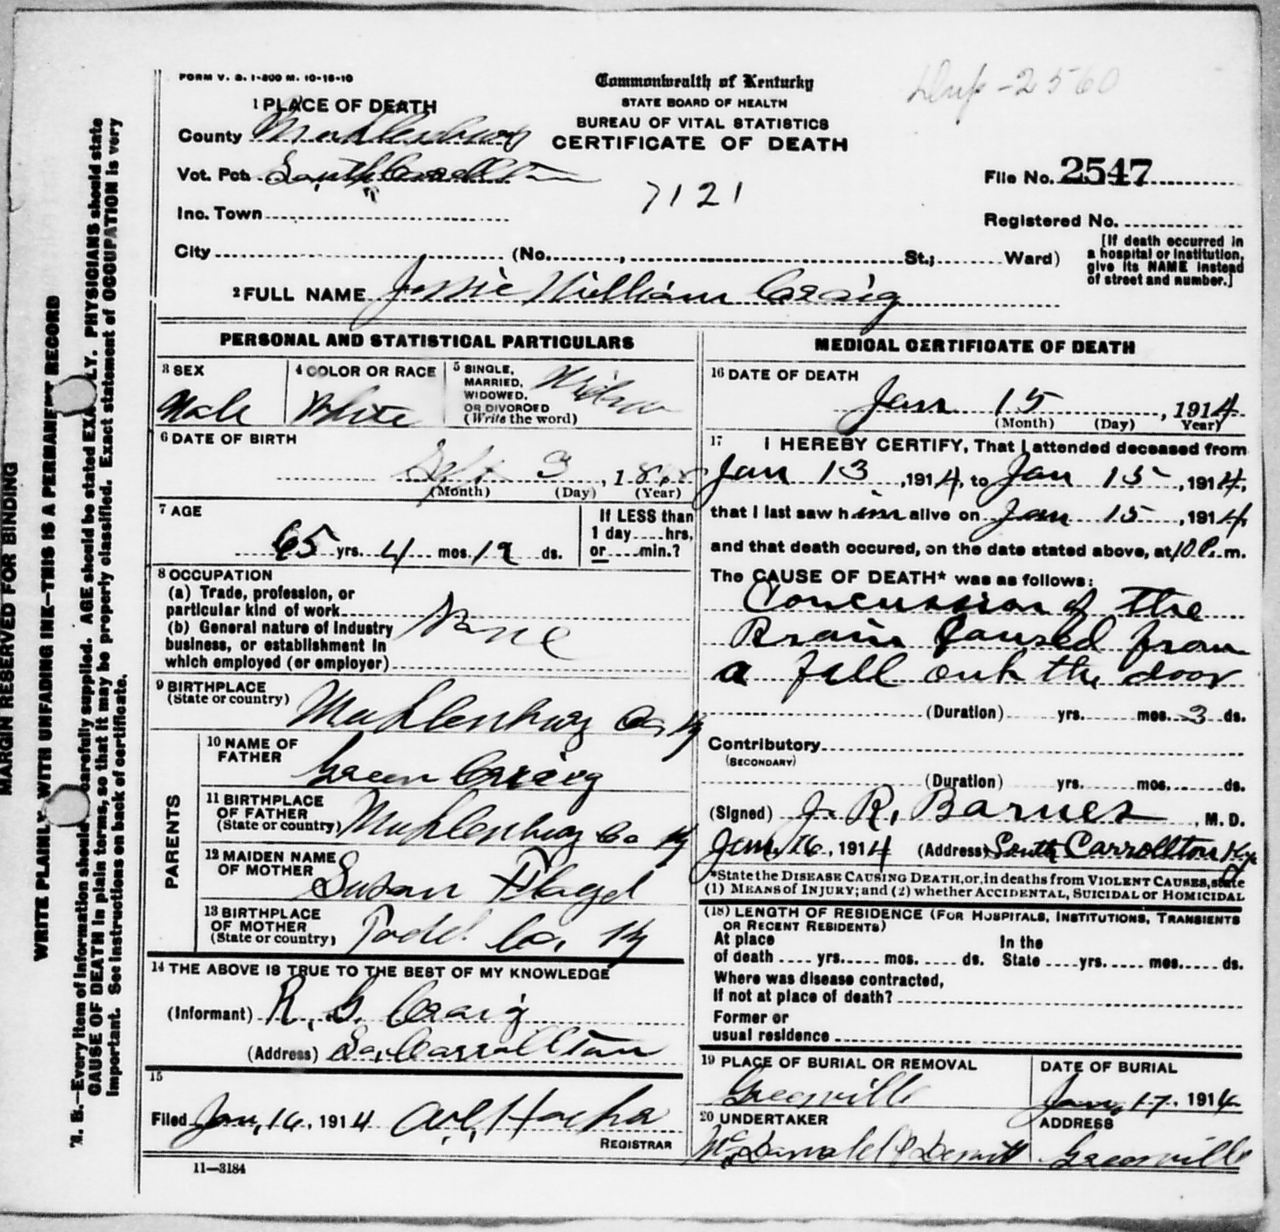 FORM V. S. 1-800 M. 10-18-10
Commonwealth of Kentucky
STATE BOARD OF HEALTH
BUREAU OF VITAL STATISTICS
CERTIFICATE OF DEATH
Dup-2560
1 PLACE OF DEATH
County Muhlenburg
Vot. Pct. South Carrollton
7121
File No. 2547
Inc. Town
Registered No.
City (No. , St.; Ward)
[If death occurred in
a hospital or institution,
give its NAME instead
of street and number.]
2 FULL NAME Jessie William Craig
PERSONAL AND STATISTICAL PARTICULARS
3 SEX
Male
4 COLOR OR RACE
White
5 SINGLE,
MARRIED,
WIDOWED,
OR DIVORCED
(Write the word)
6 DATE OF BIRTH
Sept 3, 18
(Month) (Day) (Year)
7 AGE
65 yrs. 4 mos. 12 ds.
If LESS than
1 day....hrs,
or....min.?
8 OCCUPATION
(a) Trade, profession, or
particular kind of work
(b) General nature of Industry
business, or establishment in
which employed (or employer)
None
9 BIRTHPLACE
(State or country)
Muhlenburg Co. Ky
PARENTS
10 NAME OF
FATHER
Green Craig
11 BIRTHPLACE
OF FATHER
(State or country)
Muhlenburg Co Ky
12 MAIDEN NAME
OF MOTHER
Susan
13 BIRTHPLACE
OF MOTHER
(State or country)
Todd Co. Ky
14 THE ABOVE IS TRUE TO THE BEST OF MY KNOWLEDGE
(Informant) R. G. Craig
(Address) So. Carrollton
15
Filed Jan, 16, 1914
REGISTRAR
11—3184
MEDICAL CERTIFICATE OF DEATH
16 DATE OF DEATH
Jan 15, 1914
(Month) (Day) Year)
17 I HEREBY CERTIFY, That I attended deceased from
Jan 13, 1914, to Jan 15, 1914,
that I last saw him alive on Jan 15, 1914,
and that death occured, on the date stated above, at 10 P. m.
The CAUSE OF DEATH* was as follows:
Concussion of the
Brain Caused from
a fall out the door
(Duration) yrs. mos. 3 ds.
Contributory
(SECONDARY)
(Duration) yrs. mos. ds.
(Signed) J. R. Barnes, M. D.
Jan, 16, 1914 (Address) South Carrollton Ky
*State the DISEASE CAUSING DEATH, or, in deaths from VIOLENT CAUSES, state
(1) MEANS OF INJURY; and (2) whether ACCIDENTAL, SUICIDAL OR HOMICIDAL
(18) LENGTH OF RESIDENCE (FOR HOSPITALS, INSTITUTIONS, TRANSIENTS
OR RECENT RESIDENTS)
At place
of death yrs. mos. ds.
In the
State yrs. mos. ds.
Where was disease contracted,
If not at place of death?
Former or
usual residence
19 PLACE OF BURIAL OR REMOVAL
Greenville
DATE OF BURIAL
Jan, 17, 1914
20 UNDERTAKER
McDonald & Dewitt
ADDRESS
Greenville
MARGIN RESERVED FOR BINDING
WRITE PLAINLY WITH UNFADING INK—THIS IS A PERMANENT RECORD
N. B.—Every item of information should carefully supplied. AGE should be stated EXACTLY. PHYSICIANS should state
CAUSE OF DEATH in plain terms, so that it may be properly classified. Exact statement of OCCUPATION is very
important. See instructions on back of certificate.